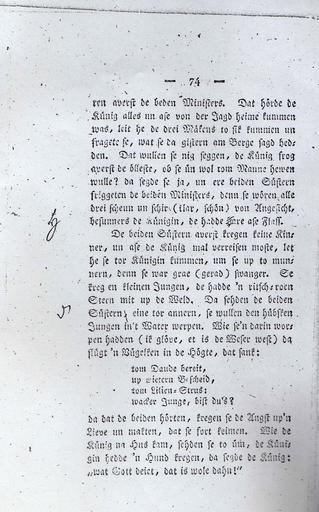 — 74 —
ren averst de beden Ministers. Dat hörde de
Künig alles un ase von der Jagd heime kummen
was, leit he de drei Mäkens to sik kummen un
fragete se, wat se da gistern am Berge sagd hed-
den. Dat wullen se nig seggen, de Künig frog
averst de ölleste, ob se ün wol tom Manne hewen
wulle? da segde se ja, un ere beiden Süstern
friggeten de beiden Ministers, denn se wören alle
drei scheun un schir (klar, schön) von Angesicht,
besunners de Künigin, de hadde Hare ase Flass.
De beiden Süstern averst kregen keine Kin-
ner, un ase de Künig mal verreisen moste, let
he se tor Künigin kummen, um se up to mun-
nern, denn se war grae (gerad) swanger. Se
kreg en kleinen Jungen, de hadde 'n ritsch-roen
Steern mit up de Weld. Da sehden de beiden
Süstern, eine tor annern, se wullen den hübsken
Jungen in't Water werpen. Wie se'n darin wor-
pen hadden (ik glöve, et is de Weser west) da
flügt 'n Vügelken in de Högte, dat sank:
tom Daude bereit,
up wietern Bescheid,
tom Lilien-Strus:
wacker Junge, bist du's?
da dat de beiden hörten, kregen se de Angst up'n
Lieve un makten, dat se fort keimen. Wie de
Künig na Hus kam, sehden se to üm, de Küni-
gin hedde 'n Hund kregen, da segde de Künig:
„wat Gott deiet, dat is wole dahn!“